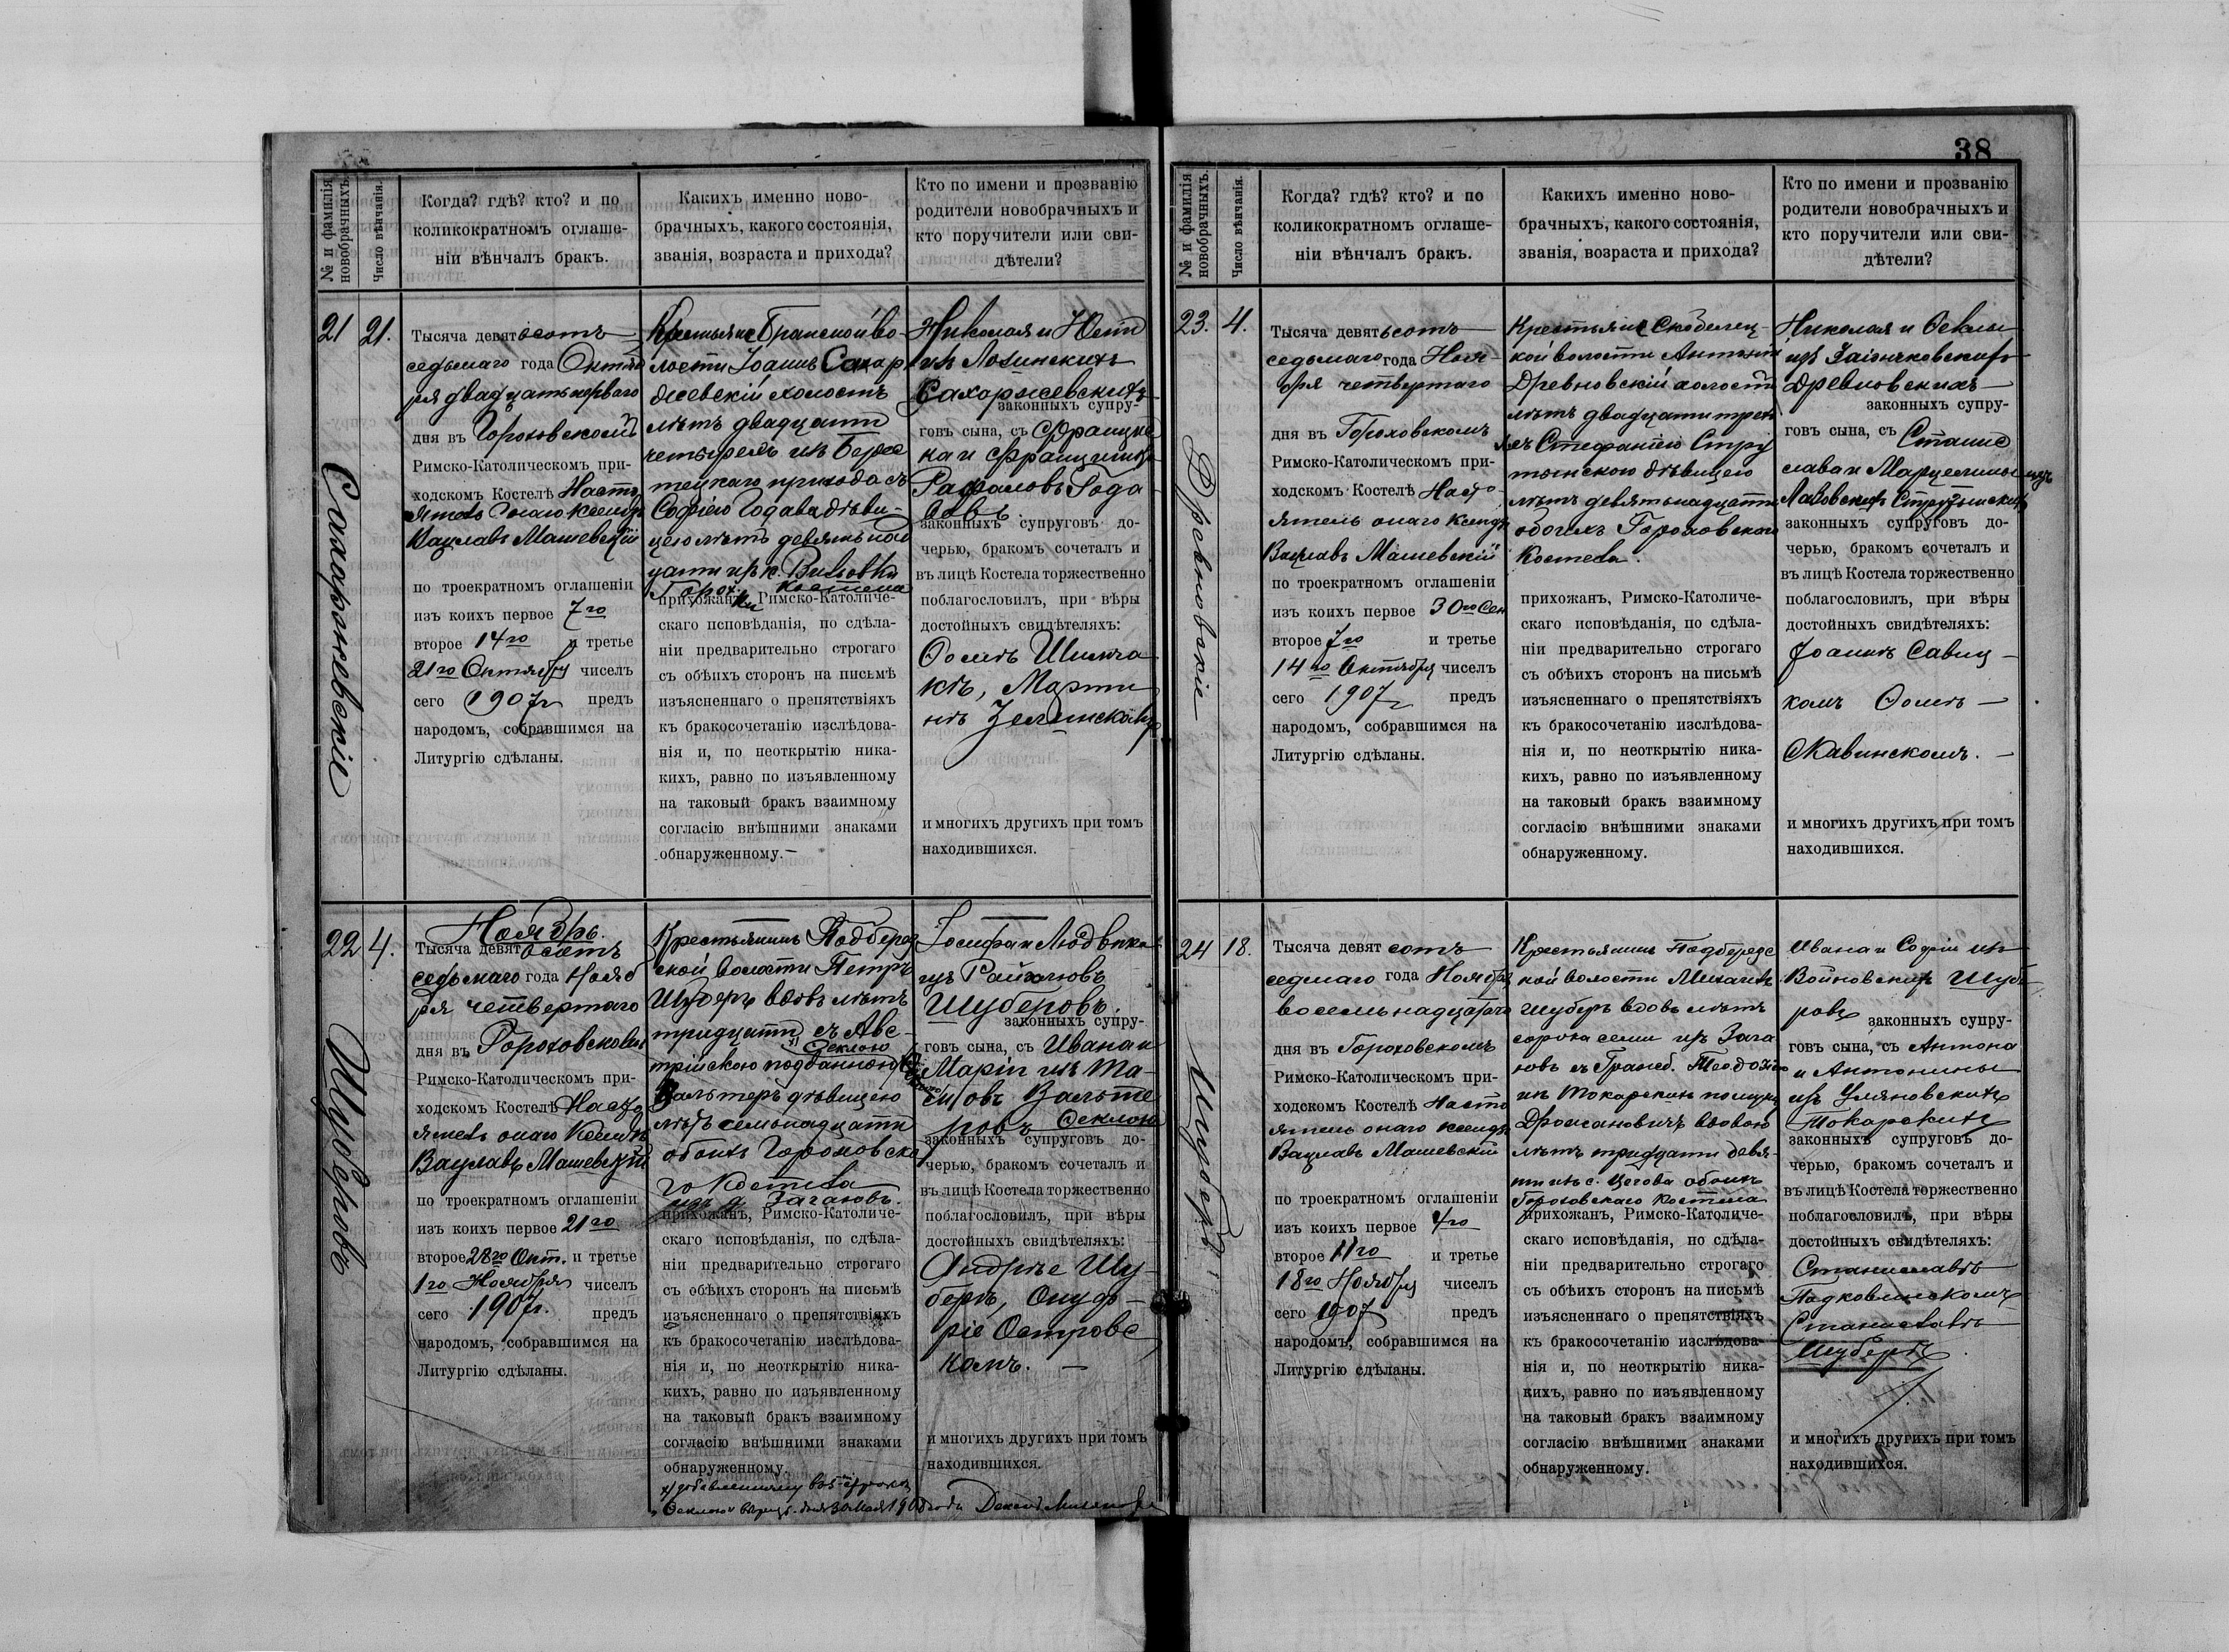 38
№ и фамилія новобрачныхъ.
Число вѣнчанія.
Когда? гдѣ? кто? и по
коликократномъ оглаше-
ніи вѣнчалъ бракъ.
Какихъ именно ново-
брачныхъ, какого состоянія,
званія, возраста и прихода?
Кто по имени и прозванію
родители новобрачныхъ и
кто поручители или сви-
дѣтели?
21
Сахоржевскіе
21.
Тысяча девятьсотъ
седьмаго года Октяб
ря двадцать перваго
дня въ Гороховскомъ
Римско-Католическомъ при-
ходскомъ Костелѣ Насто
ятель онаго Ксендзъ
Вацлавъ Машевскій
по троекратномъ оглашеніи
изъ коихъ первое 7го
второе 14го и третье
21го Октября чиселъ
сего 1907г предъ
народомъ, собравшимся на
Литургію сдѣланы.
Бранской во-
лости Іоаннъ Сахор
жевскій холостъ
лѣтъ двадцати
четырехъ изъ Бере
тецкаго прихода съ
Софіею Годава дѣви-
цею лѣтъ девятьнад
цати изъ к.
Горох. Костела
прихожан, Римско-Католиче-
скаго исповѣданія, по сдѣла-
ніи предварительно строгаго
съ обѣихъ сторонъ на письмѣ
изъясненнаго о препятствіяхъ
къ бракосочетанію изслѣдова-
нія и, по неоткрытію ника-
кихъ, равно по изъявленному
на таковый бракъ взаимному
согласію внѣшними знаками
обнаруженному.—
Николая и Юсти
изъ Лозинскихъ
Сахоржевскихъ
законныхъ супру-
говъ сына, съ Францис
ка и Францишки
Рафаловъ Года
вовъ
законныхъ супруговъ до-
черью, бракомъ сочеталъ и
въ лицѣ Костела торжественно
поблагословилъ, при вѣры
достойныхъ свидѣтеляхъ:
Ѳомѣ
кѣ, Марти
нѣ Зелинскомъ
и многихъ другихъ при томъ
находившихся.
22
Шуберовъ
4.
Ноябрь.
Тысяча девятьсотъ
седьмаго года Нояб
ря четвертаго
дня въ Гороховскомъ
Римско-Католическомъ при-
ходскомъ Костелѣ Насто
ятель онаго Ксендзъ
Вацлавъ Машевскій
по троекратномъ оглашеніи
изъ коихъ первое 21го
второе 28го Окт. и третье
1го Ноября чиселъ
сего 1907г. предъ
народомъ, собравшимся на
Литургію сдѣланы.
Крестьянинъ Подберез
ской волости Петръ
Шуберъ вдовъ лѣтъ
тридцати съ Авс-
x) Ѳеклою
трійскою подданною
Вальтеръ дѣвицею
лѣтъ семьнадцати
обоихъ Гороховска
го Костела
изъ д. Загаювъ.
прихожанъ, Римско-Католиче-
скаго исповѣданія, по сдѣла-
ніи предварительно строгаго
съ обѣихъ сторонъ на письмѣ
изъясненнаго о препятствіяхъ
къ бракосочетанію изслѣдова-
нія и, по неоткрытію ника-
кихъ, равно по изъявленному
на таковый бракъ взаимному
согласію внѣшними знаками
обнаруженному.
Іосифа и Людвики
изъ Райхлювъ
Шуберовъ.
законныхъ супру-
говъ сына, съ Ивана и
Маріи изъ
Вальте
ровъ Ѳеклою
законныхъ супруговъ до-
черью, бракомъ сочеталъ и
въ лицѣ Костела торжественно
поблагословилъ, при вѣры
достойныхъ свидѣтеляхъ:
Андрѣе Шу-
берѣ, Ануф-
ріе Островс
комъ. —
и многихъ другихъ при томъ
находившихся.
№ и фамилія новобрачныхъ.
Число вѣнчанія.
Когда? гдѣ? кто? и по
коликократномъ оглаше-
ніи вѣнчалъ бракъ.
Какихъ именно ново-
брачныхъ, какого состоянія,
званія, возраста и прихода?
Кто по имени и прозванію
родители новобрачныхъ и
кто поручители или сви-
дѣтели?
23.
Древновскіе
4.
Тысяча девятьсотъ
седьмаго года Нояб-
бря четвертаго
дня въ Гороховскомъ
Римско-Католическомъ при-
ходскомъ Костелѣ Насто-
ятель онаго Ксендзъ
Вацлавъ Машевскій
по троекратномъ оглашеніи
изъ коихъ первое 30го Сен
второе 7го и третье
14го Октября чиселъ
сего 1907г предъ
народомъ, собравшимся на
Литургію сдѣланы.
Скобелец-
кой волости Антоній
Древновскій холостъ
лѣтъ двадцати трехъ
съ Стефаніею Стру
тынскою дѣвицею
лѣтъ девятьнадцати
обоихъ Гороховскаго
Костела.
прихожан, Римско-Католиче-
скаго исповѣданія, по сдѣла-
ніи предварительно строгаго
съ обѣихъ сторонъ на письмѣ
изъясненнаго о препятствіяхъ
къ бракосочетанію изслѣдова-
нія и, по неоткрытію ника-
кихъ, равно по изъявленному
на таковый бракъ взаимному
согласію внѣшними знаками
обнаруженному.
Николая и Ѳеклы
изъ Заіончковскихъ
Древновскихъ
законныхъ супру-
говъ сына, съ Станис
лава и Марцелины изъ
Струтынскихъ
законныхъ супруговъ до-
черью, бракомъ сочеталъ и
въ лицѣ Костела торжественно
поблагословилъ, при вѣры
достойныхъ свидѣтеляхъ:
Іоаннѣ Савиц-
комъ Ѳомѣ —
Скавинскомъ. —
и многихъ другихъ при томъ
находившихся.
24
Шуберъ
18.
Тысяча девятсотъ
седмаго года Ноября
восемьнадцатаго
дня въ Гороховскомъ
Римско-Католическомъ при-
ходскомъ Костелѣ Насто
ятель онаго ксендзъ
Вацлавъ Машевскій
по троекратномъ оглашеніи
изъ коихъ первое 4го
второе 11го и третье
18го Ноября чиселъ
сего 1907 предъ
народомъ, собравшимся на
Литургію сдѣланы.
Крестьянинъ Подберезс
кой волости Михаилъ
Шуберъ вдовъ лѣтъ
сорока семи изъ Зага
ювъ съ
изъ Токарскихъ
Дрожановичъ вдовою
лѣтъ тридцати девя-
ти изъ с. Цегова обоихъ
Гороховскаго Костела
прихожанъ, Римско-Католиче-
скаго исповѣданія, по сдѣла-
ніи предварительно строгаго
съ обѣихъ сторонъ на письмѣ
изъясненнаго о препятствіяхъ
къ бракосочетанію изслѣдова-
нія и, по неоткрытію ника-
кихъ, равно по изъявленному
на таковый бракъ взаимному
согласію внѣшними знаками
обнаруженному.
Ивана и Софіи изъ
Войновскихъ Шубе
ровъ законныхъ супру-
говъ сына, съ Антона
и Антонины
изъ Уляновскихъ
Токарскихъ
законныхъ супруговъ до-
черью, бракомъ сочеталъ и
въ лицѣ Костела торжественно
поблагословилъ, при вѣры
достойныхъ свидѣтеляхъ:
Станиславѣ
Падковлинскомъ
Станиславѣ
Шуберъ.
и многихъ другихъ при томъ
находившихся.